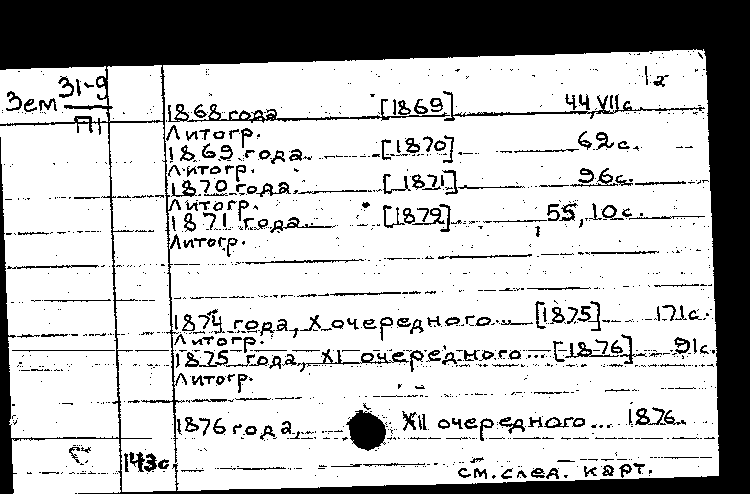 1х
Зем 31-9
П1
1868 года [1869] 44,VIIс.
Литогр.
1869 года. [1870] 62с.
Литогр.
1870 года. [1871] 96с.
Литогр.
1871 года. [1872] 55, 10с.
Литогр.
1874 года, X очередного... [1875] 171с.
Литогр.
1875 года, XI очередного... [1876] 91с.
Литогр.
1876 года, XII очередного... 1876.
143с.
см. след. карт.